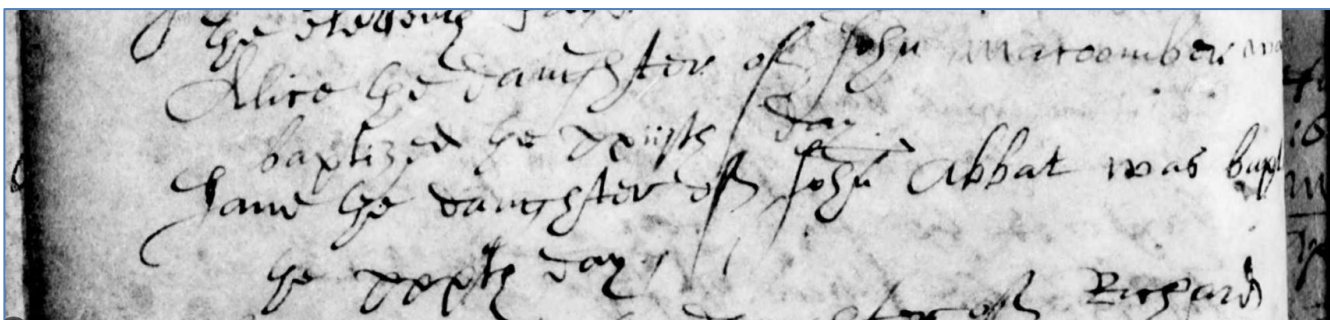 the eleventh daye
Alice the daughter of John Maroomber was
baptized the xxviijth day
Jane the daughter of John Abbat was bapt
the xxxth day
of Richard